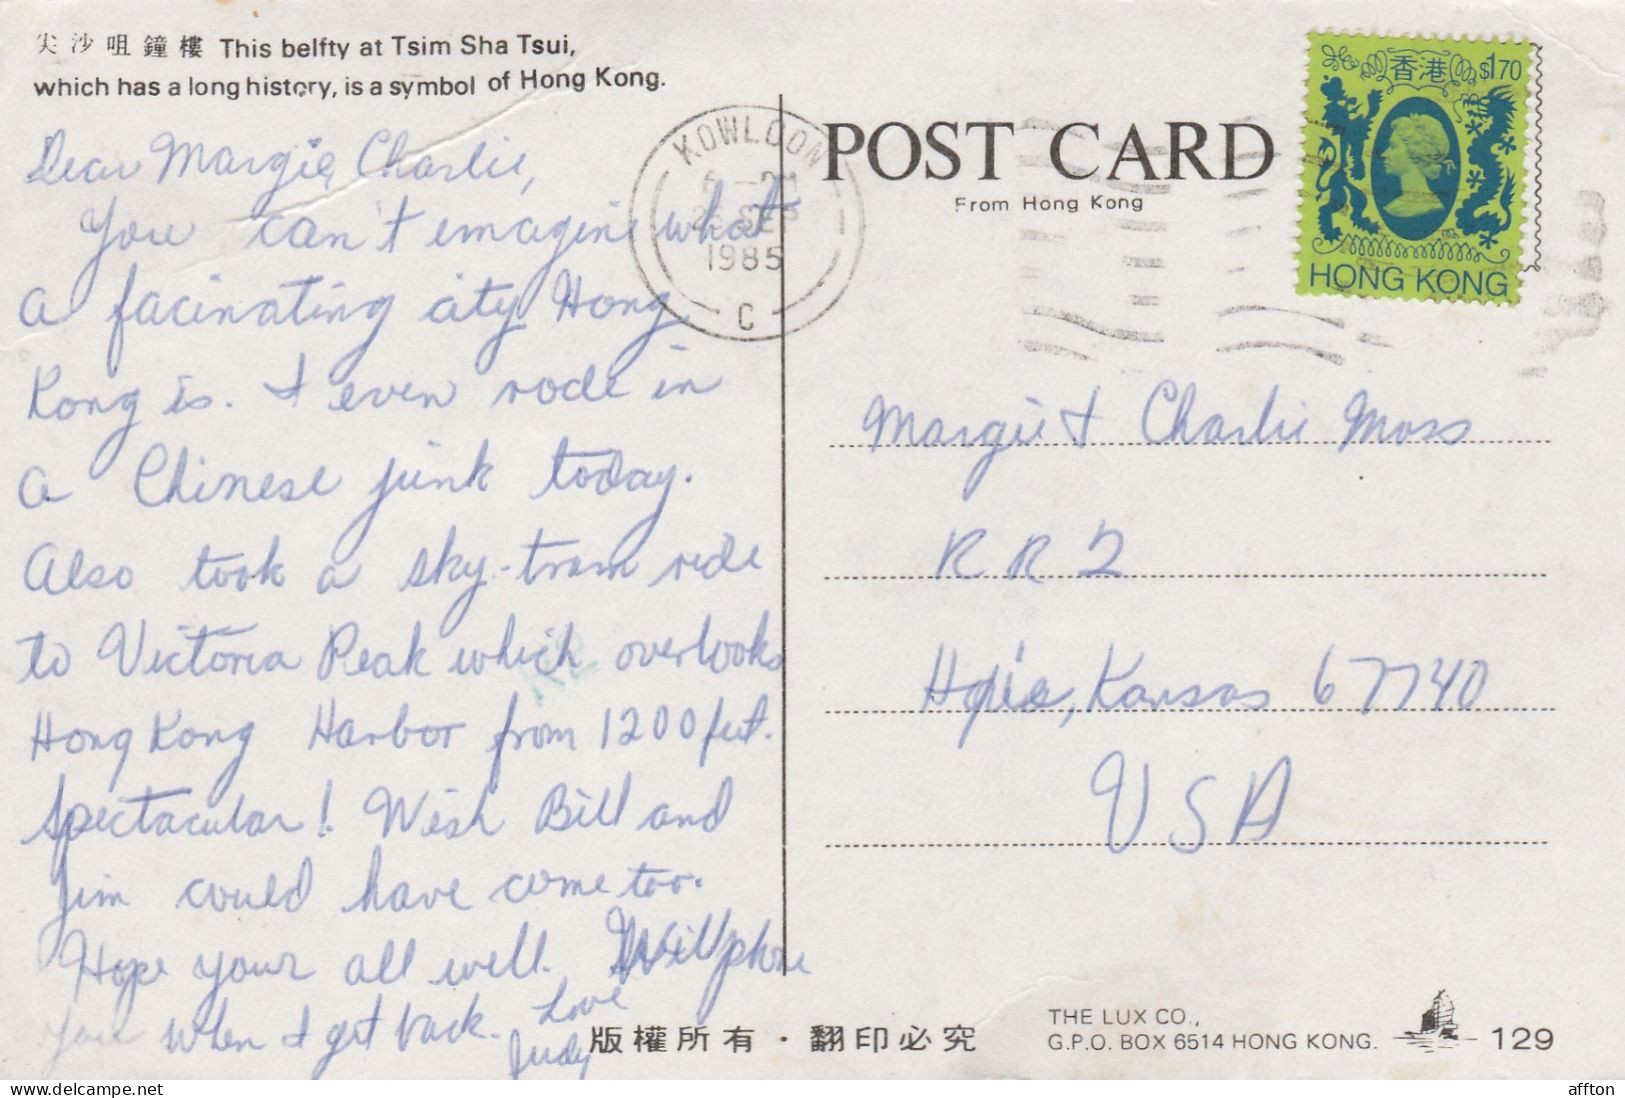 尖沙咀鐘樓 This belfty at Tsim Sha Tsui,
which has a long history, is a symbol of Hong Kong.
Dear Margie, Charlie,
You can't imagine what
a facinating city Hong
Kong is. I even rode in
a Chinese junk today.
Also took a sky-tram ride
to Victoria Peak which overlooks
Hong Kong Harbor from 1200 feet.
Spectacular! Wish Bill and
Jim could have come too.
Hope your all well. Will phone
you when I get back. Love
Judy
KOWLOON
-PM
SEP
1985
C
1
POST CARD
From Hong Kong
香港 $1.70
HONG KONG
Margie & Charlie Moss
RR2
Hoxie, Kansas 67740
USA
版權所有·翻印必究
THE LUX CO.,
G.P.O. BOX 6514 HONG KONG.
129
affton